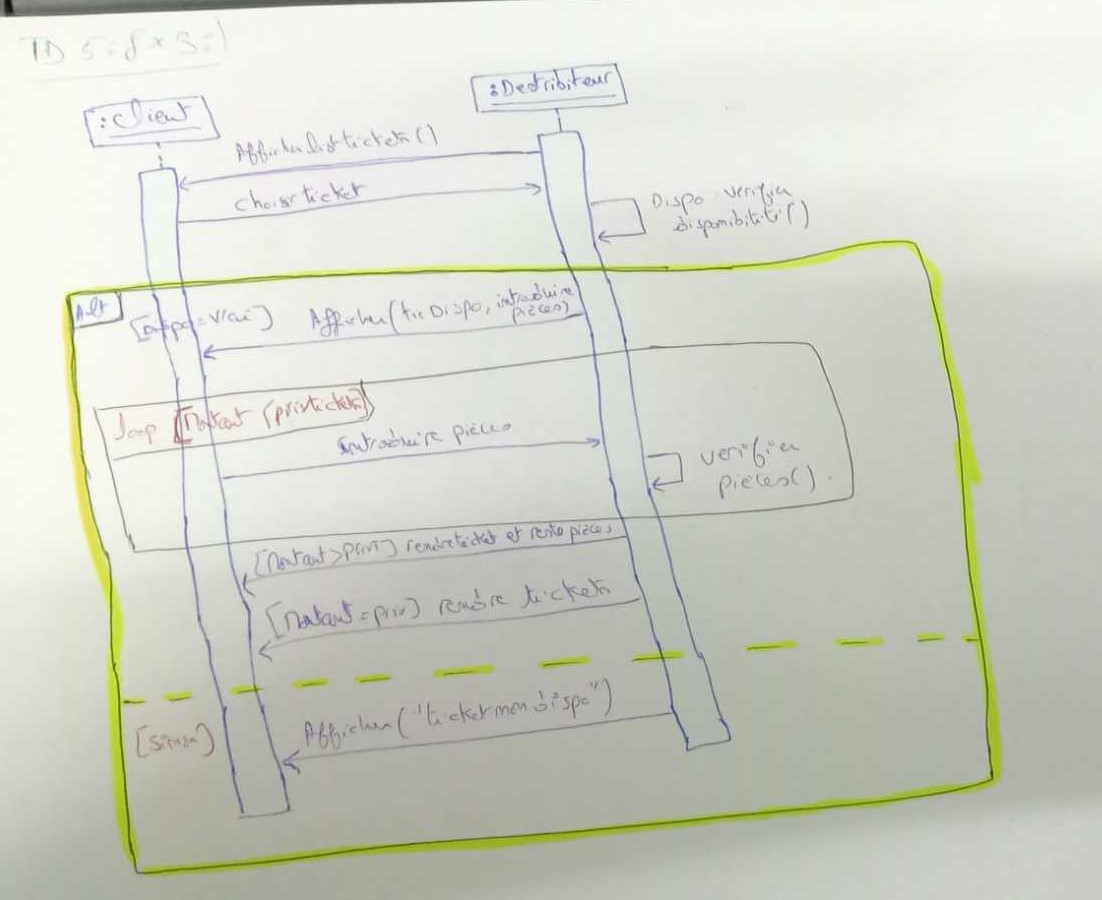 TD 5 : Ex 3 :
:Client
:Destribiteur
Afficher list tickets()
choisir ticket
Dispo : verifier
disponibilité()
Alt
[Dispo = vrai]
Afficher (tic Dispo, introduire
pièces)
loop [Montant < prix tickets]
introduire pièces
verifier
pièces().
[Montant > prix] rendre ticket et reste pièces
[Montant = prix] rendre tickets
[sinon]
Afficher ("ticket non dispo")